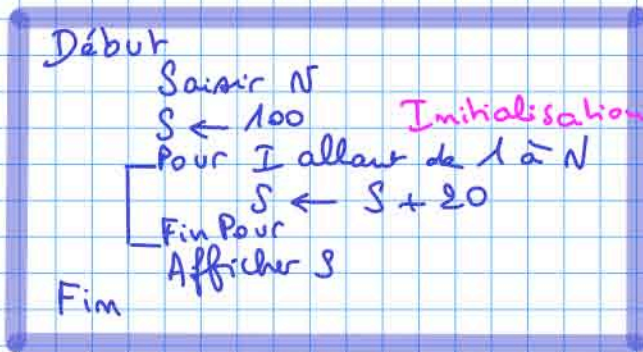 Début
Saisir N
S ← 100 Initialisation
Pour I allant de 1 à N
S ← S + 20
Fin Pour
Afficher S
Fin